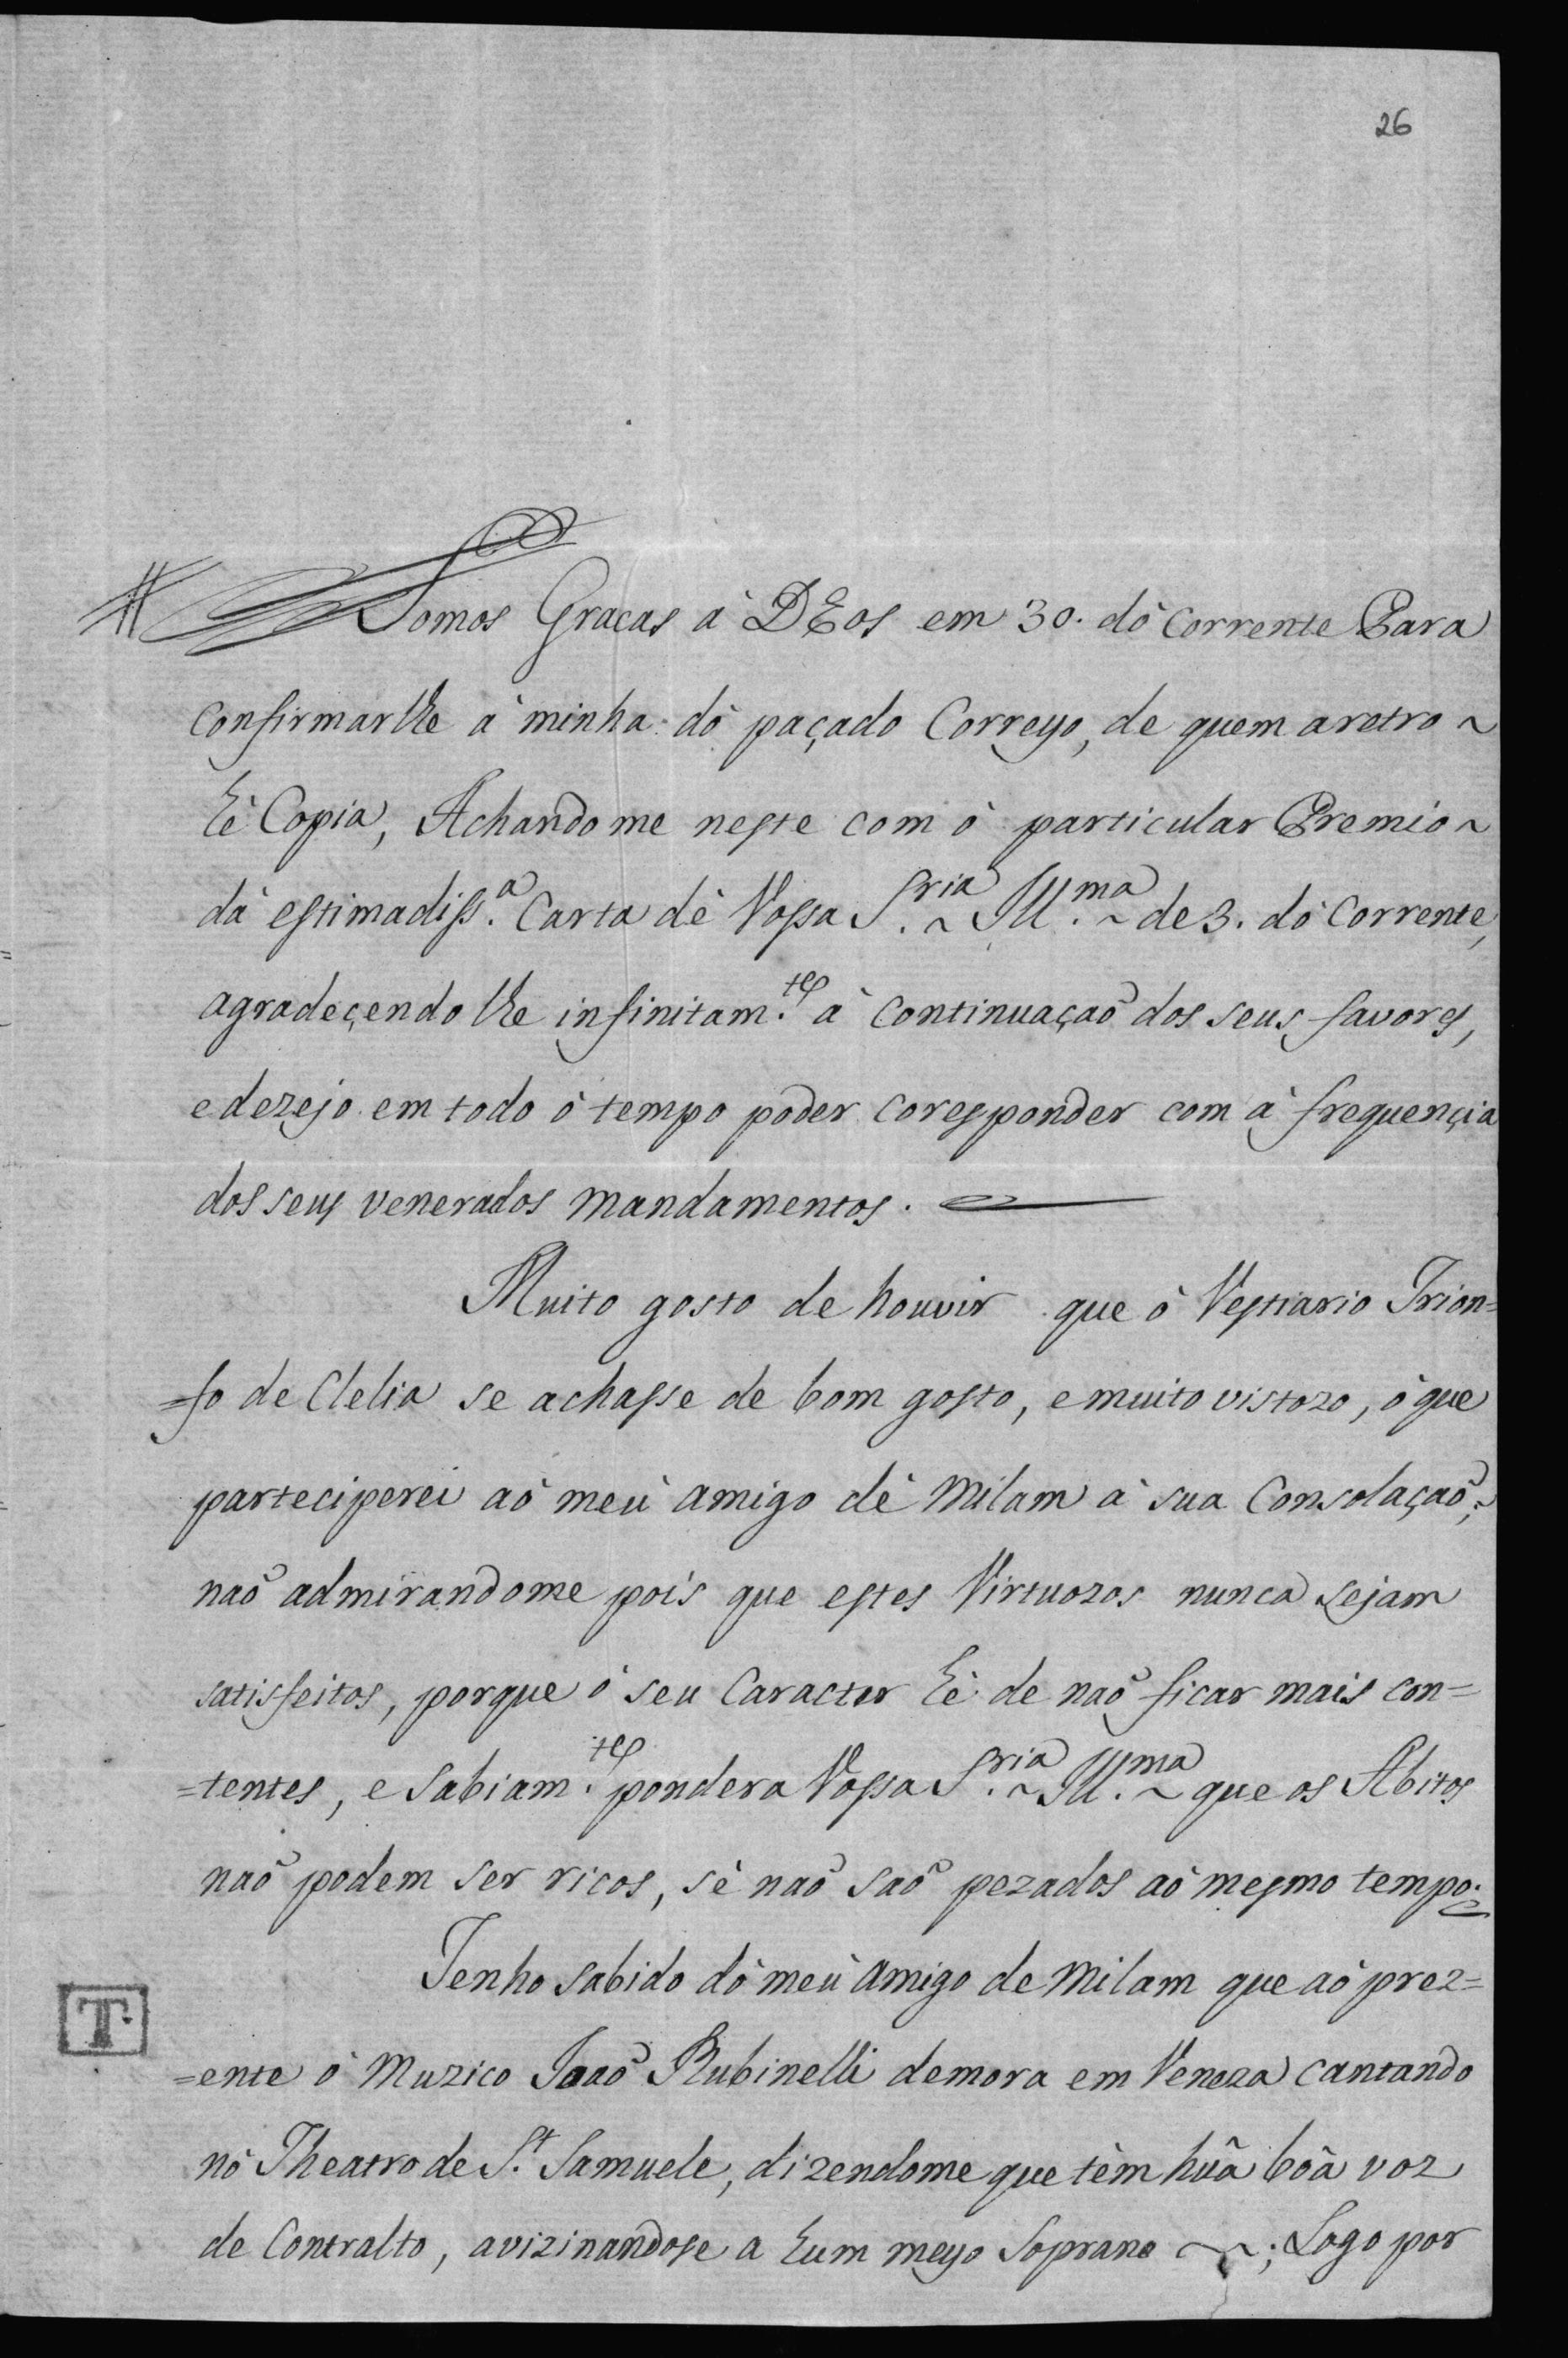 26
Somos Graças à DEos em 30. dò corrente Para
confirmarlhe à minha dò paçado Correyo, de quem a retro ~
hè Copia, Achandome neste com ò particular Premio ~
dà estimadiss.ª Carta dè Vossa S.ria ~ Ill.ma ~ de 3. dò Corrente,
agradeçendolhe infinitam.te à Continuaçaõ dos seus favores,
e dezejo em todo ò tempo poder coresponder com à frequençia
dos seus venerados mandamentos.
Muito gosto de houvir que ò Vestiario Trion=
=fo de Clelia se achasse de bom gosto, e muito vistozo, ò que
parteciperei aò meù amigo dè Milam à sua Consolaçaõ;
naõ admirandome pois que estes Virtuozos nunca sejam
satisfeitos, porque ò seu Caracter hè de naõ ficar mais con=
=tentes, e sabiam.te pondera Vossa S.ria ~ Ill.ma ~ que os Abitos
naõ podem ser ricos, sè naõ saõ pezados aò mesmo tempo.
Tenho sabido dò meù amigo de Milam que aò prez=
T
=ente ò Muzico Joaõ Rubinelli demora em Veneza cantando
nò Theatro de S.t Samuele, dizendome que tèm hûa bôa voz
de Contralto, avizinandose a hum meyo Soprano ~; Logo por